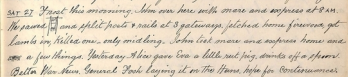 SAT 27 Frost this morning, Mon over here with mare and express at 9 A.M.
He sawed and split posts & rails at 3 gateways, fetched home firewood, got
lambs in, killed one, only midling, John lost mare and express home and
a few things. Yesterday Alice gave Eva a little red pig, drinks off a spoon
Better War News, General Foch laying it on the Huns, hope for continuance